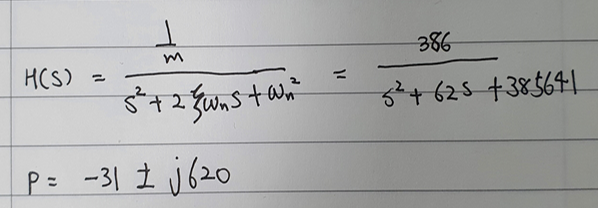 H(s) = (1/m) / (s² + 2ξωₙs + ωₙ²) = 386 / (s² + 62s + 385641)
P = -31 ± j620